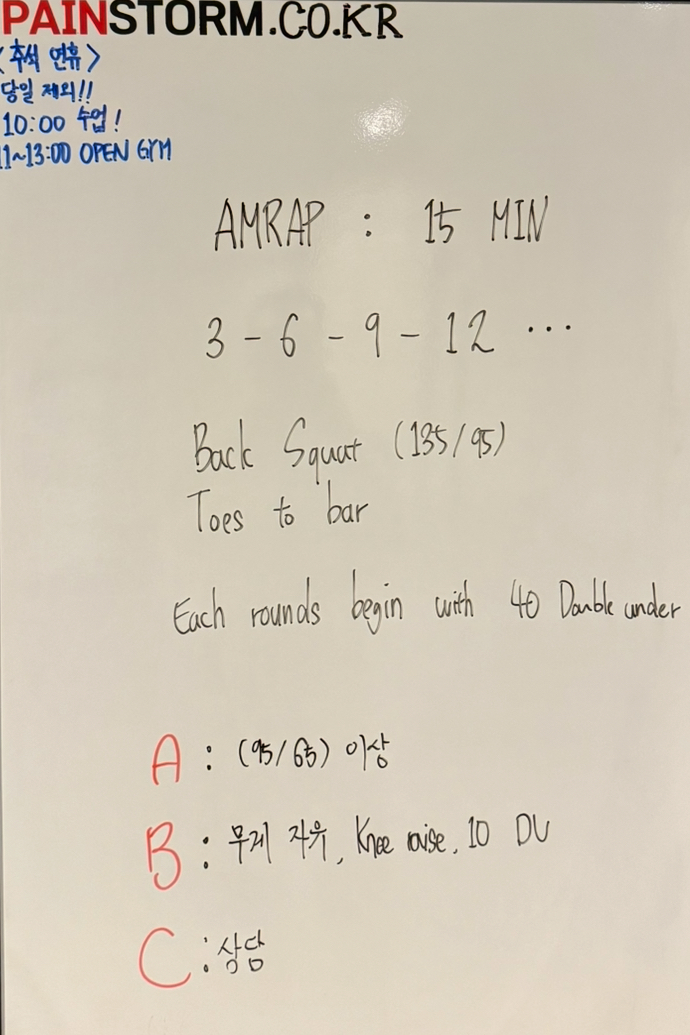 PAINSTORM.CO.KR
<추석 연휴>
당일 제외!!
10:00 수업!
11~13:00 OPEN GYM
AMRAP : 15 MIN
3 - 6 - 9 - 12 ...
Back Squat (135/95)
Toes to bar
Each rounds begin with 40 Double under
A : (95/65) 이상
B : 무게 자유, Knee raise, 10 DU
C : 상담